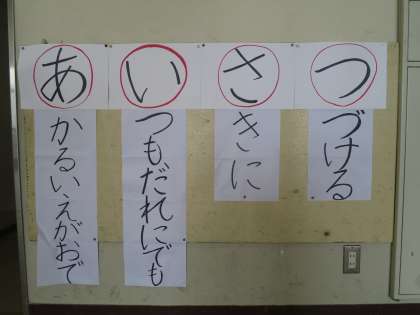 あかるいえがおで
いつもだれにでも
さきに
つづける